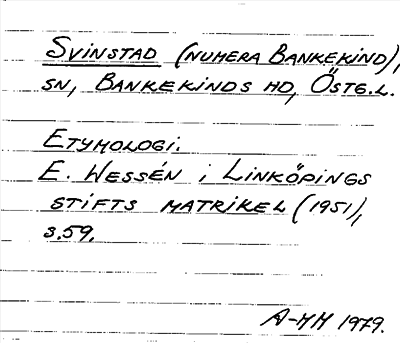 SVINSTAD (NUMERA BANKEKIND),
SN, BANKEKINDS HD, ÖSTG.L.
ETYMOLOGI.
E. WESSÉN i LINKÖPINGS
STIFTS MATRIKEL (1951),
s.59.
A-MH 1979.